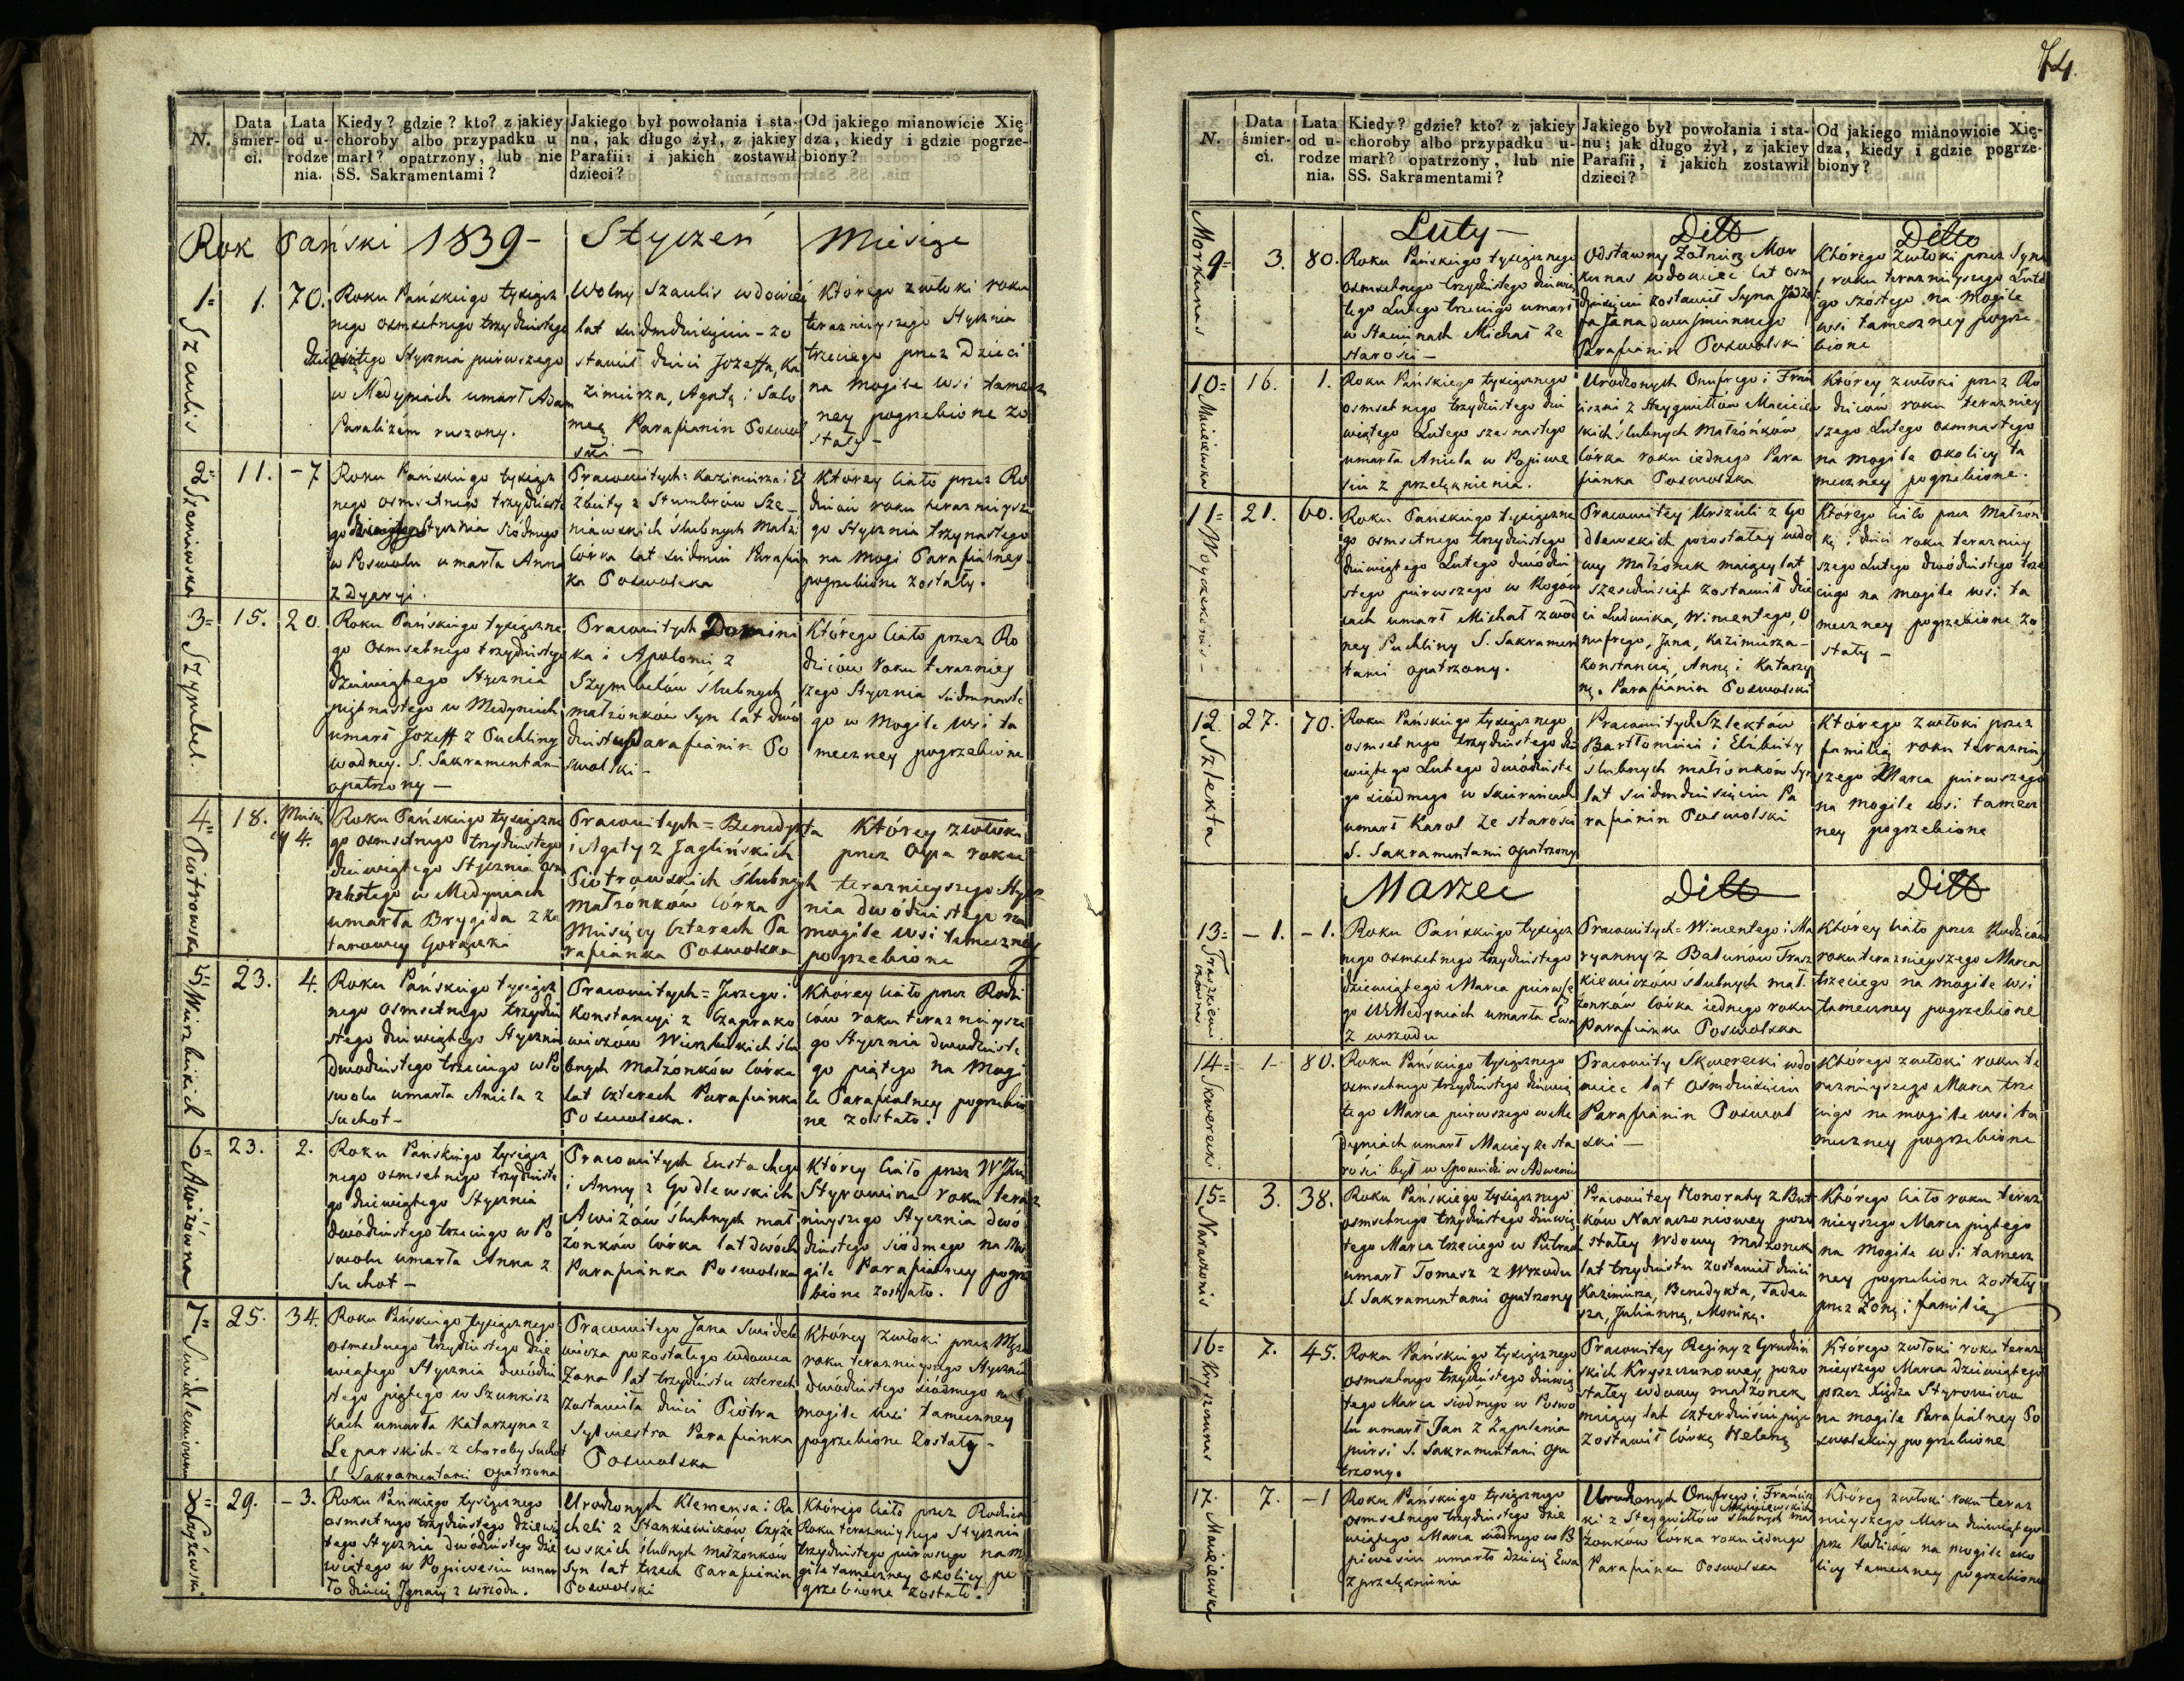 N.
Data śmier- ci.
Lata od u- rodze nia.
Kiedy? gdzie? kto? z jakiey
choroby albo przypadku u
marł? opatrzony, lub nie
SS. Sakramentami?
Jakiego był powołania i sta-
nu, jak długo żył, z jakiey
Parafii: i jakich zostawił
dzieci?
Od jakiego mianowicie Xię-
dza, kiedy i gdzie pogrze-
biony?
Rok Pański 1839 - Styczeń Miesiąc
1= Szaulis
1.
70.
Roku Pańskiego tysiącz
nego osmsetnego trzydziestego
dziewiątego Stycznia pierwszego
w Medyniach umarł Adam
Paraliżem ruszony.
Wolny Szaulis wdowiec
lat siedmdziesięciu - zo
stawił dzieci Jozeffa, Ka
zimierza, Agatę i Salo
meę Parafianin Poswol
ski -
Którego zwłoki roku
teraznieyszego Stycznia
trzeciego przez Dzieci
na mogile wsi tamecz
ney pogrzebione zo
stały -
2=
11.
- 7
Roku Pańskiego tysiącz
nego osmsetnego trzydzieste
go Stycznia Siódmego
w Poswolu umarła Anna
z Dyaryi.
Pracowitych = Kazimierza i El
żbiety z Stumbrów Sze_
niawskich Ślubnych Małżon
Córka lat siedmiu Parafian
ka Poswolska
Ktorey Ciało przez Ro
dziców roku teraznieysze
go Stycznia trzynastego
na Mogi Parafialney
pogrzebione zostały.
3= Szymbel.
15.
20.
Roku Pańskiego tysiączne
go Osmsetnego trzydziestego
dziewiątego Stycznia
piętnastego w Medyniach
umarł Jozeff z Puchliny
wodney. S. Sakramentami
opatrzony -
Pracowitych Domini
ka i Apolonii z
Szymbelów Ślubnych
małżonków Syn lat dwó
dziestu Parafianin Po
swolski -
Którego Ciało przez Ro
dziców roku terazniey
szego Stycznia siedmnaste
go w Mogile wsi ta
meczney pogrzebione
4= Piotrowska
18.
Miesię
cy 4.
Roku Pańskiego tysiączne
go osmsetnego trzydziestego
dziewiątego Stycznia osm
nastego w Medyniach
umarła Brygida z Ka
tarowey Gorączki
Pracowitych = Benedykta
i Agaty z Jaglińskich
Piotrowskich Ślubnych
Małżonków Córka
Miesięcy Czterech Pa
rafianka Poswolska
Którey zwłoki
przez Oyca roku
teraznieyszego Stycz
nia dwódziestego na
mogile wsi tameczney
pogrzebione
5= Wierzbickich
23.
4.
Roku Pańskiego tysiącz
nego osmsetnego trzydzie
stego dziewiątego Stycznia
Dwódziestego trzeciego w Po
swolu umarła Aniela z
Suchot -
Pracowitych = Jerzego i
Konstancyi z Czaprako
wiczów Wierzbickich Ślu
bnych Małżonków Córka
lat Czterech Parafianka
Poswolska.
Którey Ciało przez Rodzi
cow roku teraznieysze
go Stycznia dwudzieste
go piątego na Mogi
le Parafialney pogrzebio
ne zostało.
6= Awiżówna
23.
2.
Roku Pańskiego tysiącz
nego osmsetnego trzydzieste
go dziewiątego Stycznia
dwódziestego trzeciego w Po
swolu umarła Anna z
Suchot -
Pracowitych Eustachego
i Anny z Godlewskich
Awiżów ślubnych mał
żonków Córka lat dwóch
Parafianka Poswolska
Którey Ciało przez
Styrowicza roku teraz
nieyszego Stycznia dwó
dziestego siódmego na Mo
gile Parafialney pogrz
bione zostało.
7=
25.
34.
Roku Pańskiego tysiącznego
osmsetnego trzydziestego dzie
wiątego Stycznia dwódzie
stego piątego w Szunkisz
kach umarła Katarzyna z
Leparskich - z choroby Suchot
S. Sakramentami opatrzona
Pracowitego Jana Swidele
wicza pozostałego wdowca
Zona lat trzydziestu czterech
zostawiła dzieci Piotra
Sylwestra Parafianka
Poswolska
Którey zwłoki przez Męża
roku teraznieyszego Stycznia
dwódziestego siódmego na
mogile wsi tameczney
pogrzebione Zostały -
8= Czyżewski
29.
- 3.
Roku Pańskiego tysiącznego
osmsetnego trzydziestego dziewią
tego Stycznia dwódziestego dzie
wiątego w Popiwesiu umar
ło dziecię Ignacy z wrzodu.
Urodzonych Klemensa i Ra
cheli z Stankiewiczów Czyże
wskich ślubnych małżonków
Syn lat trzech Parafianin
Poswolski
Którego Ciało przez Rodzicow
Roku teraznieyszego Stycznia
trzydziestego pierwszego na mo
gile tameczney okolicy po
grzebione zostało.
74.
N.
Data śmier- ci.
Lata od u- rodze nia.
Kiedy? gdzie? kto? z jakiey
choroby albo przypadku u-
marł? opatrzony, lub nie
SS. Sakramentami?
Jakiego był powołania i sta-
nu; jak długo żył, z jakiey
Parafii, i jakich zostawił
dzieci?
Od jakiego mianowicie Xię-
dza, kiedy i gdzie pogrze-
biony?
Luty - Ditto Ditto
9= Morkunas
3.
80.
Roku Pańskiego tysiącznego
osmsetnego trzydziestego dziewią
tego Lutego trzeciego umarł
w Stacunach Michał ze
starości -
Odstawny Żołnierz Mor
kunas wdowiec lat osm
dziesięciu zostawił Syna Joze
fa Jana dwuimiennego
Parafianin Poswolski
Którego Zwłoki przez Syna
roku teraznieyszego Lute
go szóstego na Mogile
wsi tameczney pogrze
bione
10= Maciejewska
16.
1.
Roku Pańskiego tysiącznego
osmsetnego trzydziestego dzie
wiątego Lutego szesnastego
umarła Aniela w Popiwe
siu z przelęknienia.
Urodzonych Onufrego i Fran
ciszki z Steygwiłłów Maciejew
skich ślubnych Małżonków
Córka roku iednego Para
fianka Poswolska
Którey zwłoki przez Ro
dziców roku terazniey
szego Lutego osmnastego
na Mogile okolicy ta
meczney pogrzebione.
11=
21.
60.
Roku Pańskiego tysiączne
go osmsetnego trzydziestego
dziewiątego Lutego dwódzie
stego pierwszego w Rogow
cach umarł Michał z wod
ney Puchliny S. Sakramen
tami opatrzony.
Pracowitey Urszuli z Go
dlewskich pozostałey wdo
wy Małżonek maiący lat
szesćdziesiąt zostawił dzie
ci Ludwika, Wincentego, O
nufrego, Jana, Kazimierza -
Konstancię, Annę i Katarzy
nę. Parafianin Poswolski
Którego Ciało przez Małżon
kę i dzieci roku teraznie
szego Lutego dwódziestego trze
ciego na mogile wsi ta
meczney pogrzebione zo
stały -
12 Szlekta
27.
70.
Roku Pańskiego tysiącznego
osmsetnego trzydziestego dzie
wiątego Lutego dwódzieste
go siódmego w Skieraniach
umarł Karol ze starości
S. Sakramentami opatrzony
Pracowitych Szlektów
Bartłomieia i Elżbiety
ślubnych małżonków Syn
lat siedmdziesięciu Pa
rafianin Poswolski
Którego zwłoki przez
familią roku teraznie
szego Marca pierwszego
na mogile wsi tamecz
ney pogrzebione
Marzec Ditto Ditto
13=
- 1.
- 1.
Roku Pańskiego tysiącz
nego osmsetnego trzydziestego
dziewiątego Marca pierwsze
go w Medyniach umarła Ewa
z wrzodu
Pracowitych = Wincentego i Ma
ryanny z Balunow Trasz
kiewiczów ślubnych mał
żonków Córka iednego roku
Parafianka Poswolska
Którey Ciało przez Rodziców
roku teraznieyszego Marca
trzeciego na mogile wsi
tameczney pogrzebione
14= Skwerecki
1
80.
Roku Pańskiego tysiącznego
osmsetnego trzydziestego dziewią
tego Marca pierwszego w Me
dyniach umarł Maciey ze sta
rości był w Spowiedzi w Adwencie
Pracowity Skwerecki wdo
wiec lat Osmdziesięciu
Parafianin Poswol
ski -
Którego zwłoki roku te
raznieyszego Marca trze
ciego na mogile wsi ta
meczney pogrzebione
15=
3.
38.
Roku Pańskiego tysiącznego
osmsetnego trzydziestego dziewią
tego Marca trzeciego w
umarł Tomasz z Wrzodu
S. Sakramentami opatrzony
Pracowitey Honoraty z But
ków Naraszoniowey pozo
stałey wdowy małżonek
lat trzydziestu zostawił dzieci
Kazimierza, Benedykta, Tadeu
sza, Juliannę, Monikę.
Którego Ciało roku teraz
nieyszego Marca piątego
na Mogile wsi tamecz
ney pogrzebione zostały
przez Żonę i familią
16= Kryszczunas
7.
45.
Roku Pańskiego tysiącznego
osmsetnego trzydziestego dziewią
tego Marca siódmego w Poswo
lu umarł Jan z Zapalenia
piersi S. Sakramentami opa
trzony.
Pracowitey Reginy z Grudziń
skich Kryszczunowey, pozo
stałey wdowy małżonek
maiący lat czterdzieści pięć
Zostawił Córkę Helenę
Którego zwłoki roku teraz
nieyszego Marca dziewiątego
przez Xiędza Styrowicza
na mogile Parafialney Po
swolskiey pogrzebione
17= Maciejewska
7.
- 1
Roku Pańskiego tysiącznego
osmsetnego trzydziestego dzie
wiątego Marca siódmego w Po
piwesiu umarło dziecię Ewa
z przelęknienia
Urodzonych Onufrego i Francisz
ki z Steygwiłłów Maciejewskich ślubnych mał
żonków Córka roku iednego
Parafianka Poswolska
Którey zwłoki roku teraz
nieyszego Marca dziewiątego
prze Rodziców na mogile oko
licy tameczney pogrzebione